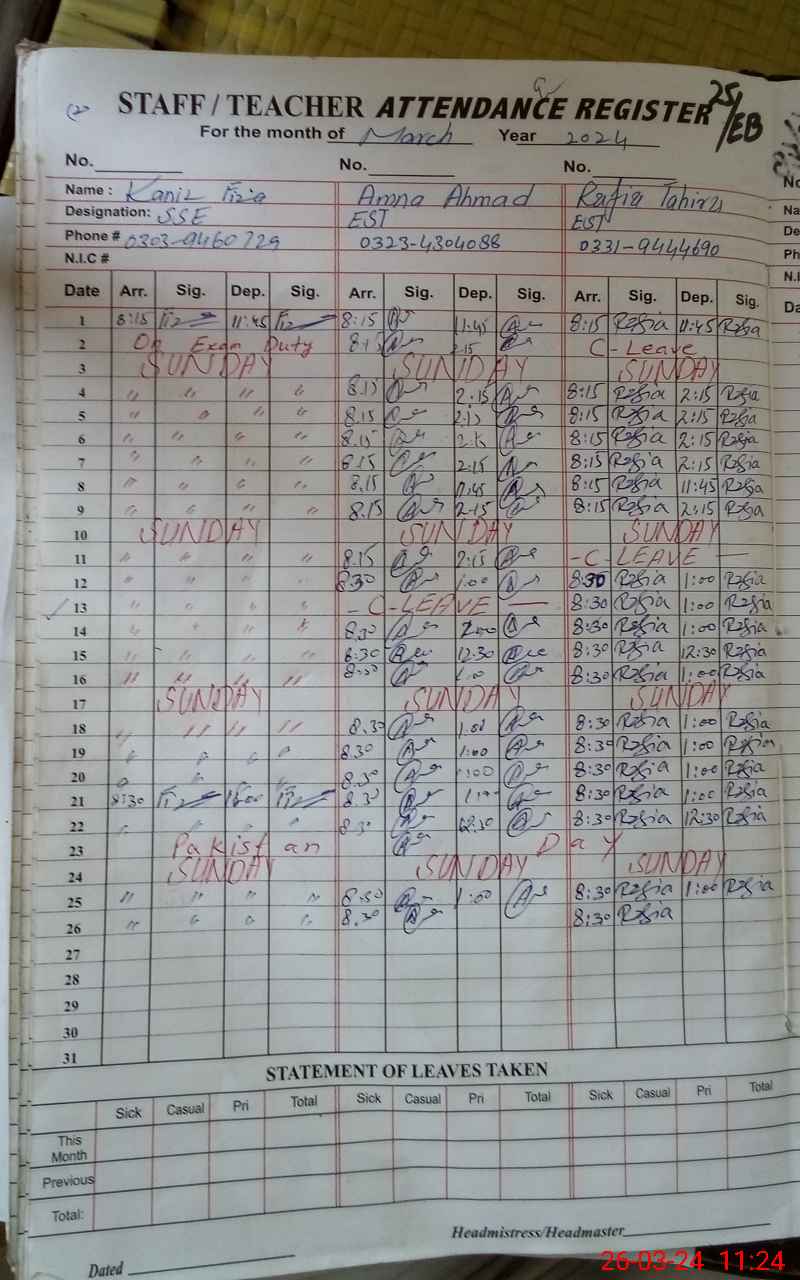 STAFF / TEACHER ATTENDANCE REGISTER 25/EB
For the month of March Year 2024
No. No. No.
Name : Kaniz Fiza Amna Ahmad Rafia Tahira
Designation: SSE EST EST
Phone # 0303-9460729 0323-4304088 0331-9444690
N.I.C #
Date Arr. Sig. Dep. Sig. Arr. Sig. Dep. Sig. Arr. Sig. Dep. Sig.
1 8:15 11:45 8:15 11:45 8:15 Rafia 11:45 Rafia
2 On Exam Duty 8:15 2.15 C-Leave
3 SUNDAY SUNDAY SUNDAY
4 " " " " 8.15 2:15 8:15 Rafia 2:15 Rafia
5 " " " " 8.15 2:15 8:15 Rafia 2:15 Rafia
6 " " " " 8.15 8:15 Rafia 2:15 Rafia
7 " " " " 8.15 2:15 8:15 Rafia 2:15 Rafia
8 " " " " 8.15 11:45 8:15 Rafia 11:45 Rafia
9 " " " " 8.15 2.15 8:15 Rafia 2:15 Rafia
10 SUNDAY SUNDAY SUNDAY
11 " " " " 8.15 2:15 -C-LEAVE —
12 " " " " 8.30 1:00 8:30 Rafia 1:00 Rafia
13 " " " " -C-LEAVE — 8:30 Rafia 1:00 Rafia
14 " " " " 8.30 8:30 Rafia 1:00 Rafia
15 " " " " 8:30 12:30 8:30 Rafia 12:30 Rafia
16 " " " " 8:30 8:30 Rafia 1:00 Rafia
17 SUNDAY SUNDAY SUNDAY
18 " " " " 8.30 1.00 8:30 Rafia 1:00 Rafia
19 " " " " 8.30 1:00 8:30 Rafia 1:00 Rafia
20 " " " " 8.30 1:00 8:30 Rafia 1:00 Rafia
21 8:30 8.30 8:30 Rafia 1:00 Rafia
22 " " " " 8.30 12:30 8:30 Rafia 12:30 Rafia
23 Pakistan Day
24 SUNDAY SUNDAY SUNDAY
25 " " " " 8.30 1:00 8:30 Rafia 1:00 Rafia
26 " " " " 8.30 8:30 Rafia
27
28
29
30
31
STATEMENT OF LEAVES TAKEN
Sick Casual Pri Total Sick Casual Pri Total Sick Casual Pri Total
This Month
Previous
Total:
Headmistress/Headmaster
Dated
26-03-24 11:24